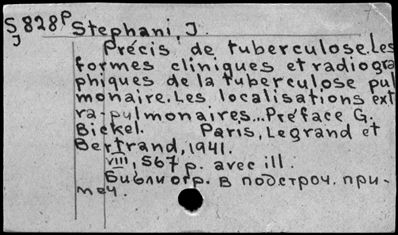 S 828 P Stephani, J.
J Précis de tuberculose. Les
formes cliniques et radiogra
phiques de la tuberculose pul
monaire. Les localisations ext
ra-pulmonaires... Préface G.
Bickel. Paris, Legrand et
Bertrand, 1941.
VIII, 567 p. avec ill.
Библиогр. в подстроч. при-
меч.